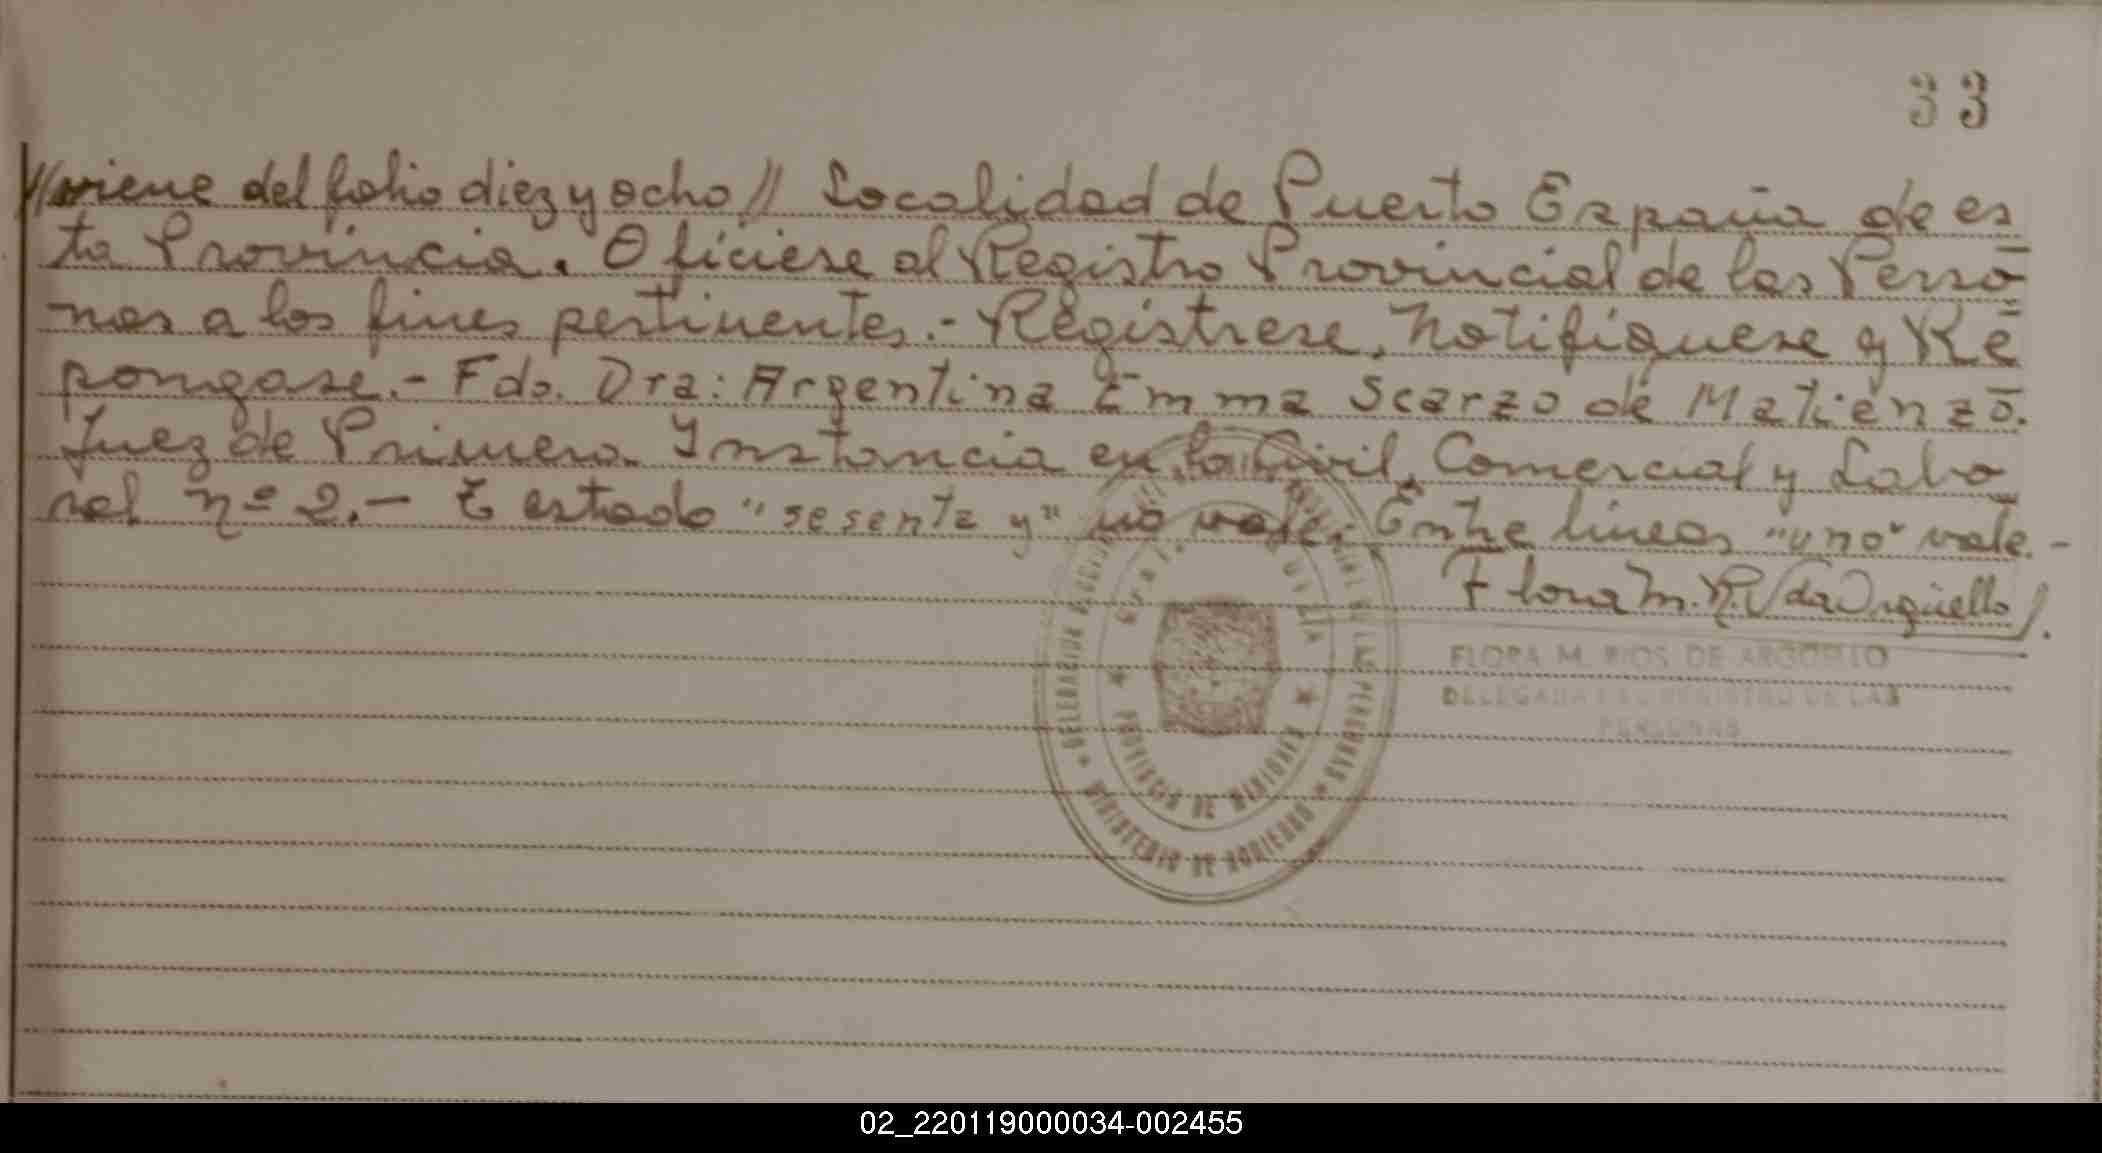 33
//viene del folio diez y ocho// Localidad de Puerto España de es
ta Provincia. Ofíciese al Registro Provincial de las Perso
nas a los fines pertinentes.- Regístrese, Notifíquese y Re
póngase.- Fdo. Dra: Argentina Emma Scarzo de Matienzo.
Juez de Primera Instancia en lo Civil, Comercial y Labo
ral nº 2.- Testado "sesenta y" no vale. Entre líneas "uno" vale.-
Flora M. R. Vda Argüello
FLORA M. RIOS DE ARGUELLO
DELEGADA DEL REGISTRO DE LAS
PERSONAS
PROVINCIA DE MISIONES
MINISTERIO DE GOBIERNO
02_220119000034-002455